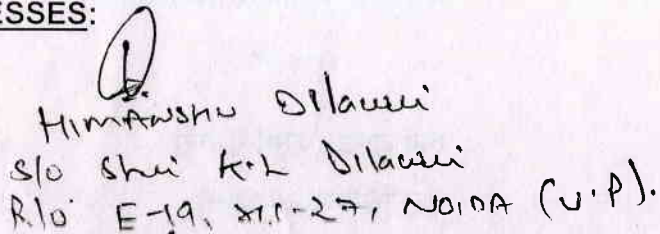 ESSES:
1.
HIMANSHU Dilawri
S/o Shri K.L Dilawri
R/o E-19, Sec-27, NOIDA (U.P).